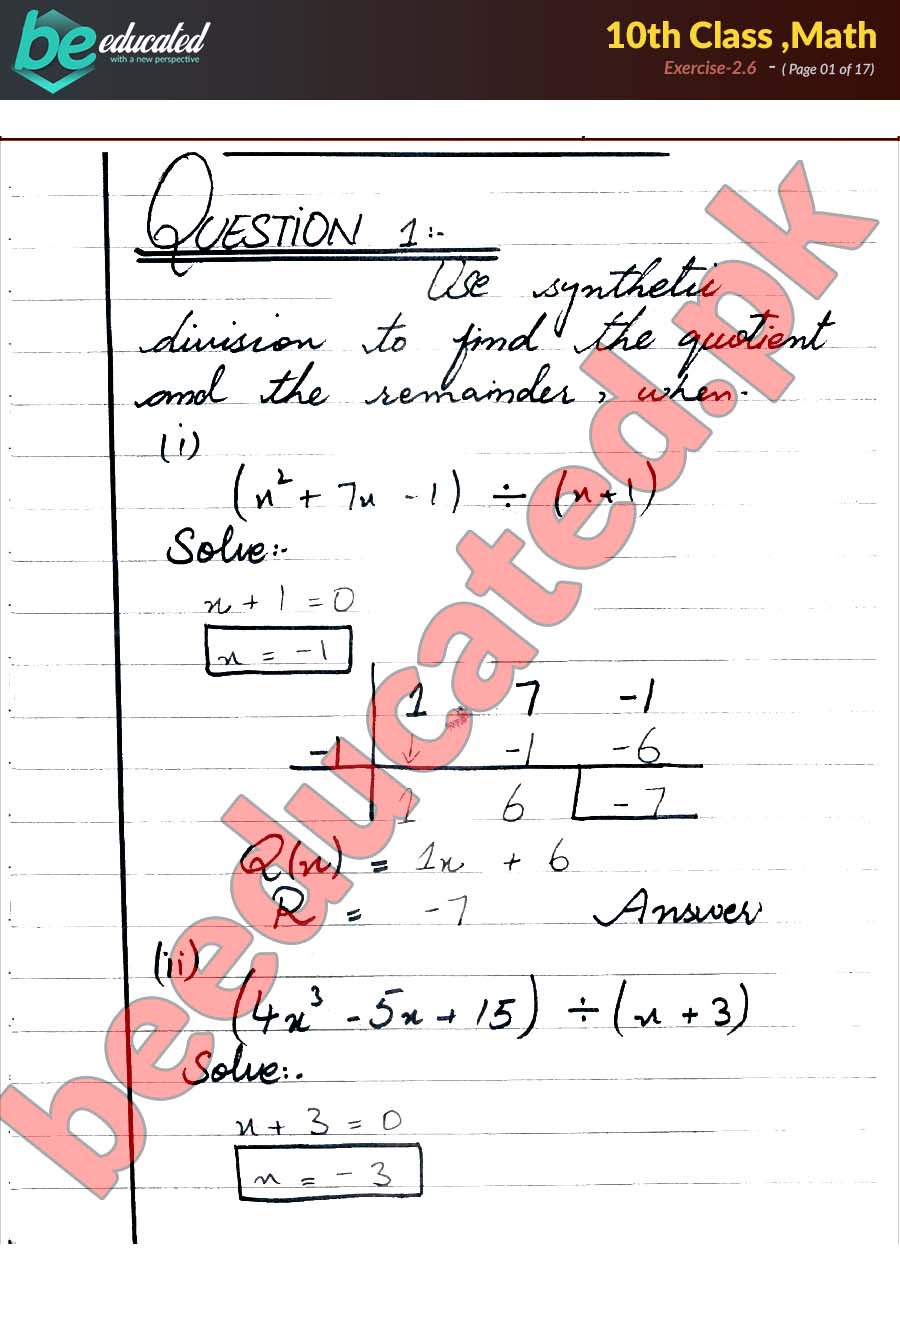 be educated
with a new perspective
10th Class ,Math
Exercise-2.6 - ( Page 01 of 17)
QUESTION 1:-
Use synthetic
division to find the quotient
and the remainder, when.
(i)
(x² + 7x - 1) ÷ (x+1)
Solve:-
x + 1 = 0
x = -1
1 7 -1
-1 ↓ -1 -6
1 6 -7
Q(x) = 1x + 6
R = -7 Answer
(ii)
(4x³ - 5x + 15) ÷ (x + 3)
Solve:-
x + 3 = 0
x = - 3
beeducated.pk